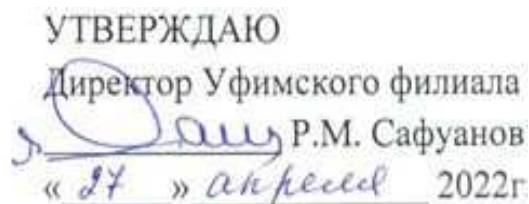 УТВЕРЖДАЮ
Директор Уфимского филиала
Р.М. Сафуанов
« 27 » апреля 2022г